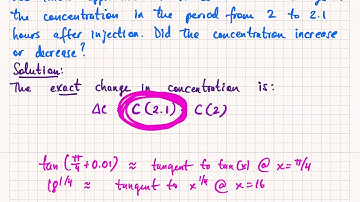 the concentration in the period from 2 to 2.1
hours after injection. Did the concentration increase
or decrease?
Solution:
The exact change in concentration is:
ΔC = C(2.1) - C(2)
tan(π/4 + 0.01) ≈ tangent to tan(x) @ x = π/4
18^1/4 ≈ tangent to x^1/4 @ x = 16